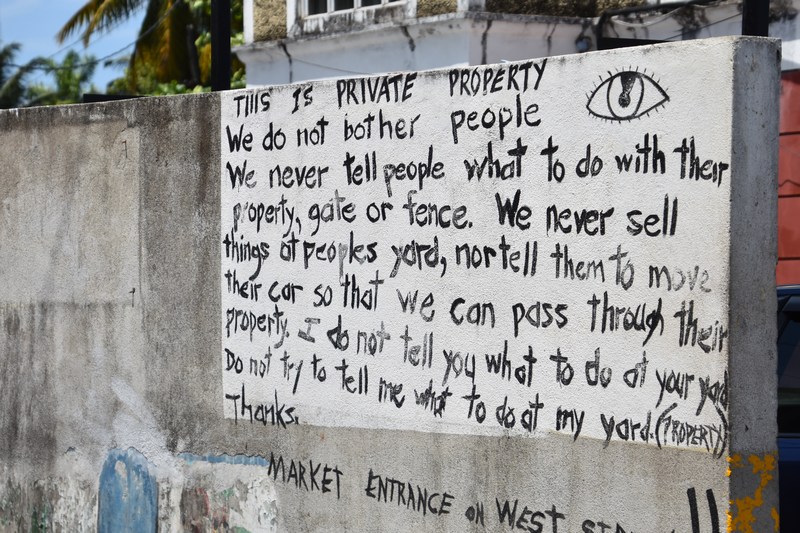 THIS IS PRIVATE PROPERTY
We do not bother people
We never tell people what to do with their
property, gate or fence. We never sell
things at peoples yard, nor tell them to move
their car so that we can pass through their
property. I do not tell you what to do at your yard
Do not try to tell me what to do at my yard. (PROPERTY)
Thanks.
MARKET ENTRANCE ON WEST SIDE